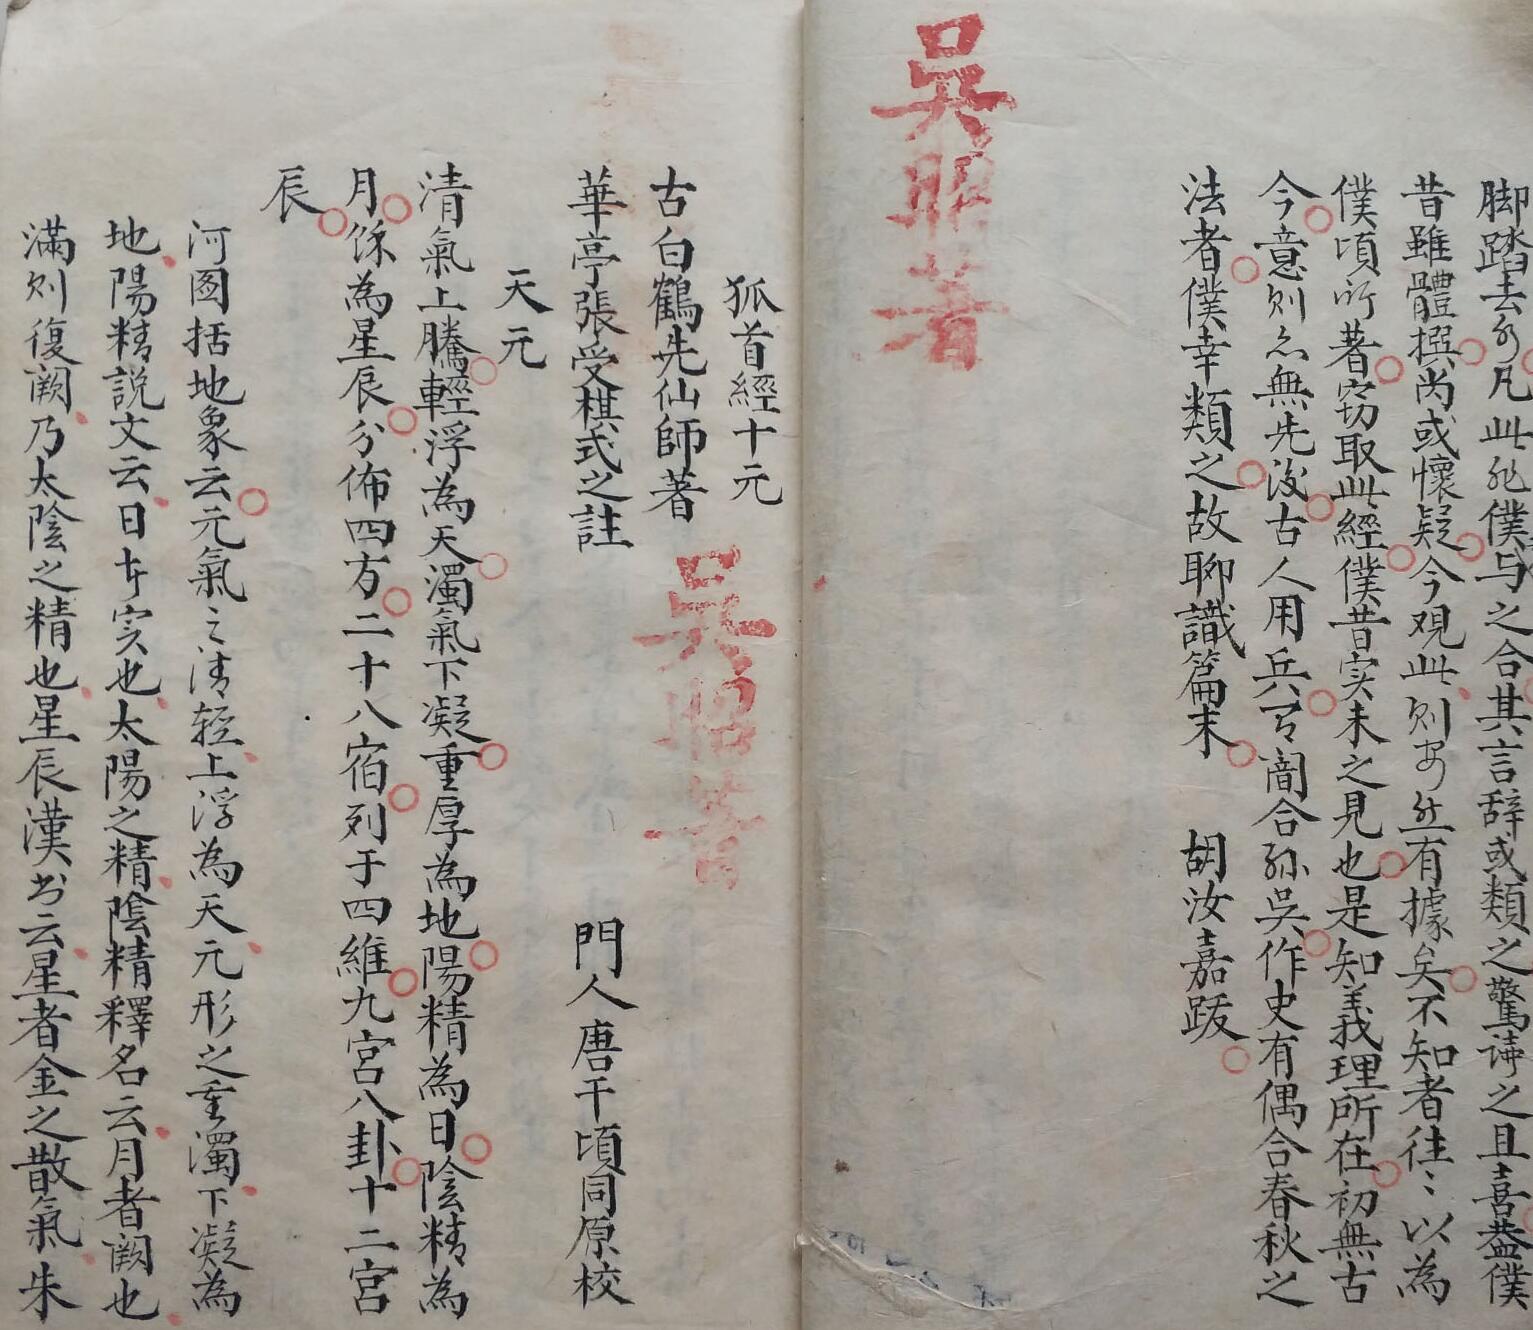 脚踏去了凡此非僕与之合其言辞或類之驚誇之且喜盖僕
昔雖體撰尚或懷疑今观此則安然有據矣不知者往〻以為
僕頃所著窃取此經僕昔实未之見也是知義理所在初無古
今意则尓無先後古人用兵有闇合孫吳作史有偶合春秋之
法者僕幸類之故聊識篇末 胡汝嘉跋
吳昭著
狐首經十元
古白鶴先仙師著
吳昭著
華亭張受棋式之註 門人唐干頃同原校
天元
清氣上騰輕浮為天濁氣下凝重厚為地陽精為日陰精為
月餘為星辰分佈四方二十八宿列于四維九宮八卦十二宮
辰
河圖括地象云元氣之清轻上浮為天元形之重濁下凝為
地陽精説文云日者实也太陽之精陰精釋名云月者闕也
滿则復闕乃太陰之精也星辰漢书云星者金之散氣朱